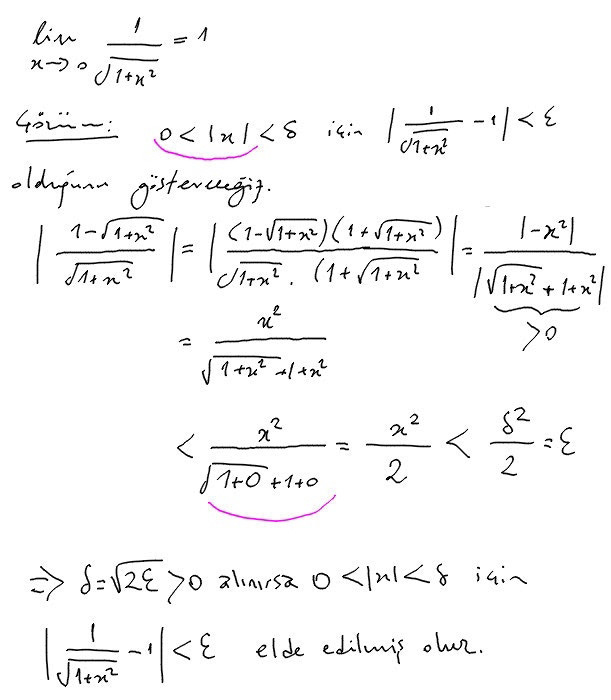 lim x→0 1/√(1+x²) = 1
Çözüm: 0 < |x| < δ için |1/√(1+x²) - 1| < ε
olduğunu göstereceğiz.
|(1-√(1+x²))/√(1+x²)| = |((1-√(1+x²))(1+√(1+x²)))/(√(1+x²) . (1+√(1+x²))| = |-x²|/|√(1+x²) + 1+x²|
> 0
= x²/(√(1+x²) + 1+x²)
< x²/(√(1+0) + 1+0) = x²/2 < δ²/2 = ε
⇒ δ = √(2ε) > 0 alınırsa 0 < |x| < δ için
|1/√(1+x²) - 1| < ε elde edilmiş olur.